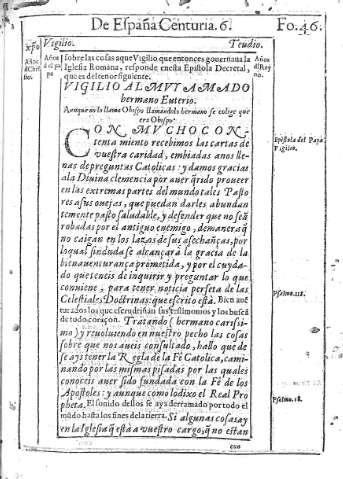 De España Centuria. 6.
Fo. 46.
xp̃o
Vigilio.
Teudio.
Años
d̃ Chri
sto.
Años
del pa
pa
Años
d̃l Rey
no.
sobre las cosas aque Vigilio que entonces gouernaua la
Iglesia Romana, responde en esta Epistola Decretal,
que es del tenor siguiente.
VIGILIO AL MVY AMADO
hermano Euterio.
Aunque no lo llama Obispo llamandole hermano se colige que
era Obispo.
CON MVCHO CON
tentamiento recebimos las cartas de
vuestra caridad, embiadas a nos lle-
nas de preguntas Catolicas: y damos gracias
a la Diuina clemencia por auer q̃rido proueer
en las extremas partes del mundo tales Pasto
res a sus ouejas, que puedan darles abundan
temente pasto saludable, y defender que no seã
robadas por el antiguo enemigo, de manera q̃
no caigan en los lazos de sus asechanças, por
lo qual sin duda se alcançarà la gracia de la
bienauenturança prometida, y por el cuyda
do que teneis de inquirir y preguntar lo que
conuiene, para tener noticia perfeta de las
Celestiales Doctrinas: que escrito està. Bien auẽ
turados los que escudriñan sus testimonios y los buscã
de todo coraçon. Tratando (hermano carissi-
mo) y reuoluiendo en nuestro pecho las cosas
sobre que nos aueis consultado, hallo que de
se ays tener la Regla de la Fè Catolica, cami-
nando por las mismas pisadas por las quales
conoceis auer sido fundada con la Fè de los
Apostoles: y aunque como lo dixo el Real Pro
pheta. El sonido dellos se aya derramado por todo el
mũdo hasta los fines de la tierra. Si algunas cosas ay
en la Iglesia q̃ està a vuestro cargo, q̃ no estan
Epistola del Papa
Vigilio.
Psalmo. 118.
Psalmo. 18.